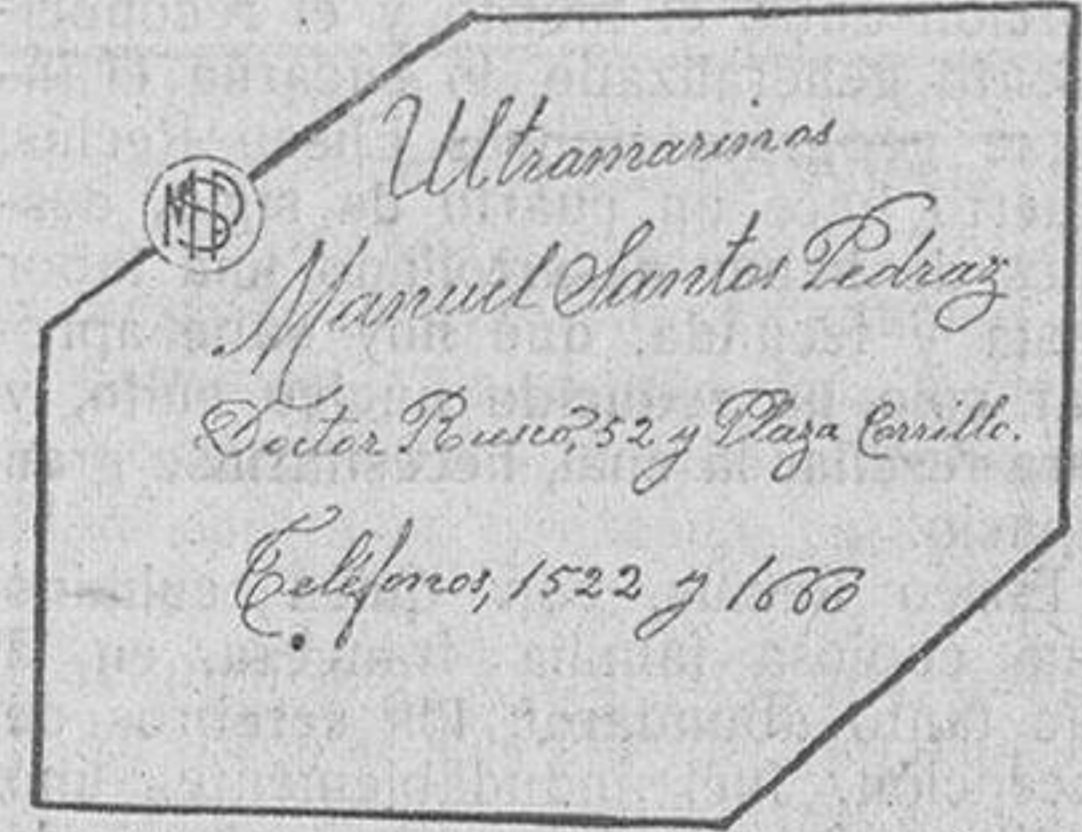 MSP
Ultramarinos
Manuel Santos Pedraz
Doctor Riesco, 52 y Plaza Corrillo.
Teléfonos, 1522 y 1660